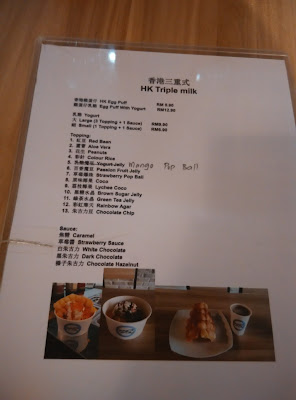 香港三重式
HK Triple milk
香港雞蛋仔 HK Egg Puff RM 9.90
雞蛋仔乳酪 Egg Puff With Yogurt RM12.90
乳酪 Yogurt
大 Large (3 Topping + 1 Sauce) RM9.90
細 Small (1 Topping + 1 Sauce) RM6.90
Topping:
1. 紅豆 Red Bean
2. 蘆薈 Aloe Vera
3. 花生 Peanuts
4. 彩針 Colour Rice
5. Yogurt Jelly Mango Pop Ball
6. Passion Fruit Jelly
7. Strawberry Pop Ball
8. 原味椰果 Coco
9. 荔枝椰果 Lychee Coco
10. 黑糖水晶 Brown Sugar Jelly
11. 綠茶水晶 Green Tea Jelly
12. 彩虹寒天 Rainbow Agar
13. 朱古力豆 Chocolate Chip
Sauce:
焦糖 Caramel
草莓醬 Strawberry Sauce
白朱古力 White Chocolate
黑朱古力 Dark Chocolate
榛子朱古力 Chocolate Hazelnut